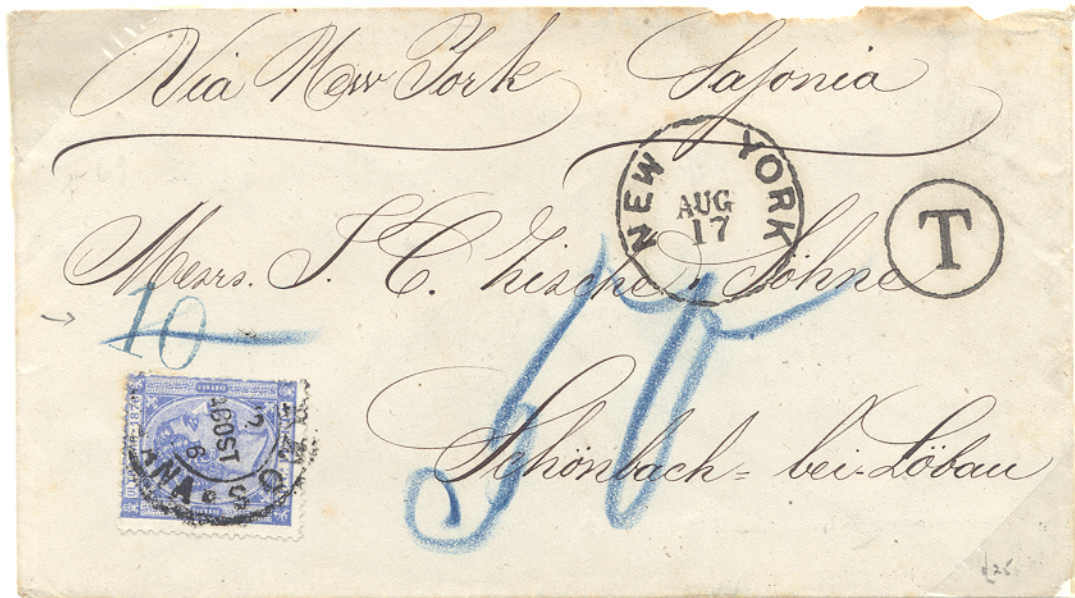 Via New York Sajonia
NEW YORK
AUG
17
T
Messrs. J. C. Zische Söhne
10
50
Schönbach = bei-Löbau
1876
AGOST
6
ANA • S